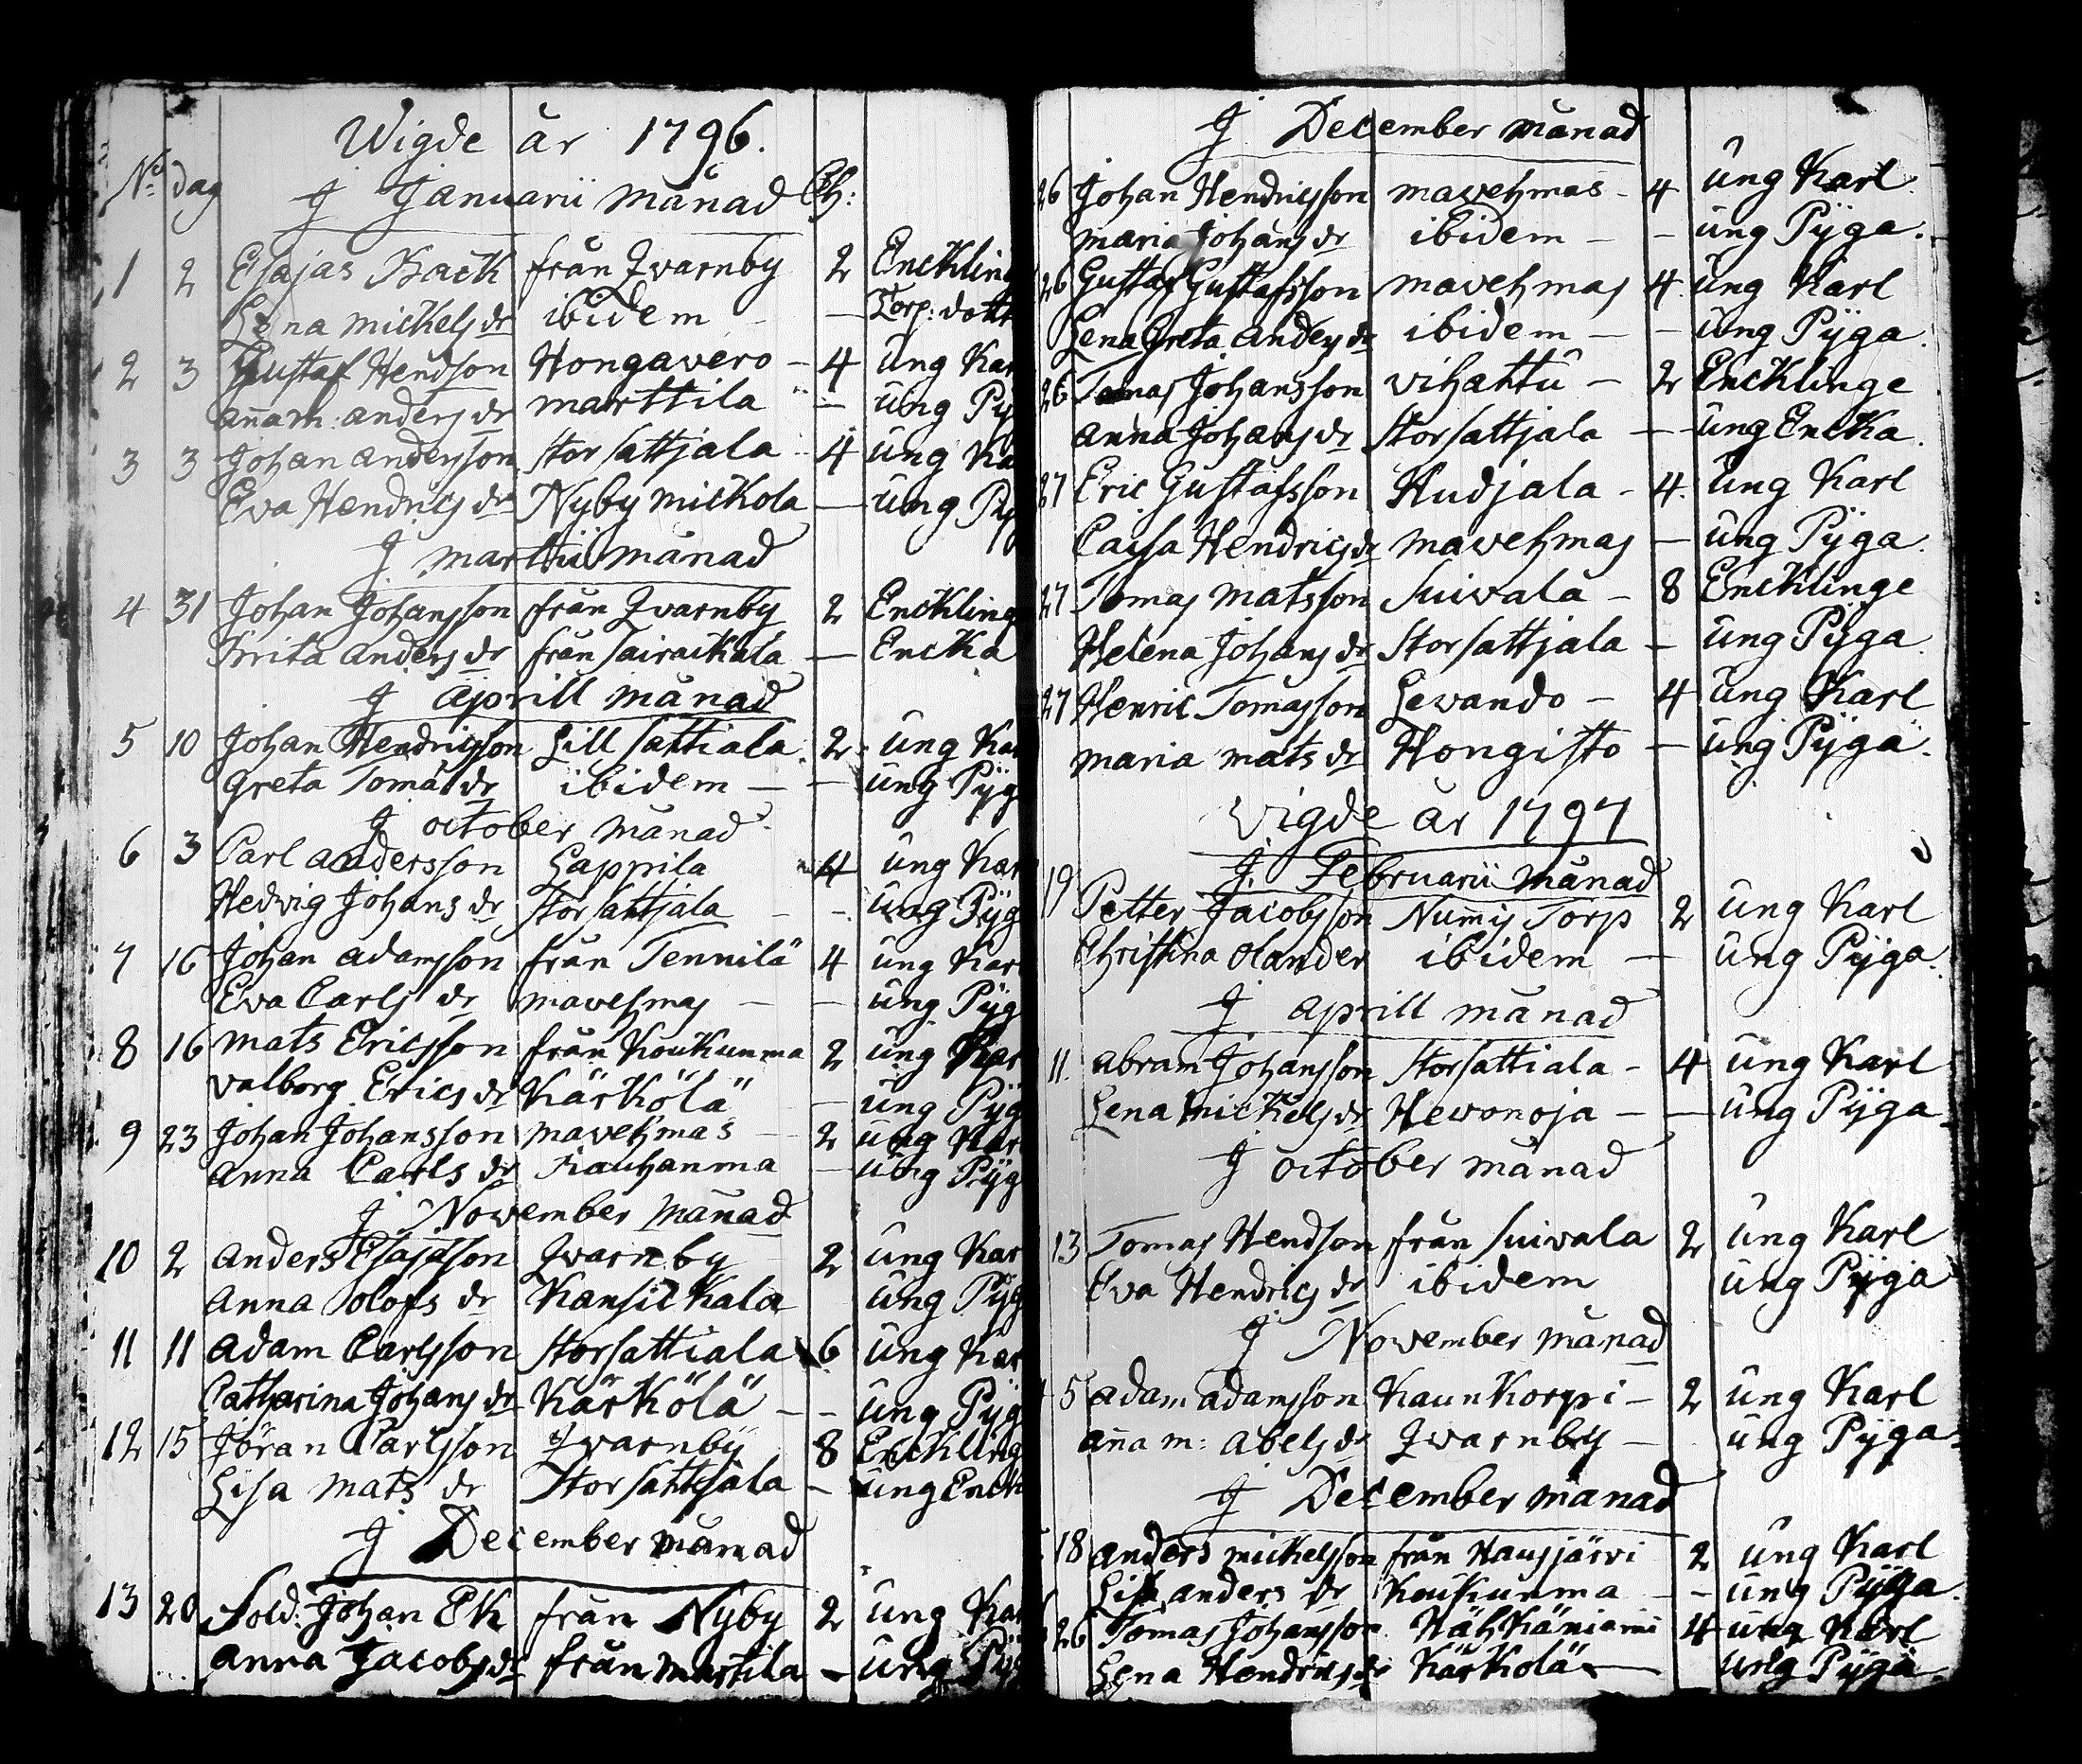 Wigde år 1796.
No dag J Januarii månad Ch:
1 2 Esajas Back från Qvarnby 2 Encklin
Lena Michelsdr ibidem — Torp: dott
2 3 Gustaf Hendson Hongavero — 4 ung Kar
Annam: Andersdr Marttila — ung Py
3 3 Johan Andersson Storsattjala 4 ung Ka
Eva Hendricsdr Nyby Mickola — ung Py
J Martii månad
4 31 Johan Johansson från Qvarnby 2 Enckling
Brita Andersdr från Sairackala — Encka
J Aprill månad
5 10 Johan Hendricsson Lill Sattiala 2 ung Kar
Greta Tomasdr ibidem — ung Pÿg
J October månad
6 3 Carl Andersson Lappila 4 ung Kar
Hedvig Johans dr Storsattjala — ung Pÿg
7 16 Johan Adamsson från Tennilä 4 ung Karl
Eva Carls dr Mavehmas — ung Pÿg
8 16 Mats Ericsson från Koukunma 2 ung Kar
Valborg Ericsdr Kärkölä — ung Pÿg
9 23 Johan Johansson Mavehmas 2 ung Kar
Anna Carls dr Rauhanma — ung Pÿg
J November månad
10 2 Anders Esajasson Qvarnby 2 ung Kar
Anna Olofs dr Kansickala ung Pÿg
11 11 Adam Carlsson Storsattiala 6 ung Kar
Catharina Johansdr Kärkölä — ung Pÿg
12 15 Jöran Carlsson Qvarnbÿ 8 Enckling
Lisa Mats dr Storsattjala — ung Enck
J December månad
13 20 Sold: Johan Ek från Nyby 2 ung Kar
Anna Jacobsdr från Martila — ung Pÿg
J December månad
26 Johan Hendricsson Mavehmas — 4 ung Karl
Maria Johansdr ibidem — ung Pÿga.
26 Gustaf Gustafsson Mavehmas 4 ung Karl
Lena Greta Andersdr ibidem — ung Pÿga.
26 Tomas Johansson Vihattu — 2 Encklinge
Anna Johansdr Storsattjala — ung Encka.
27 Eric Gustafsson Hudjala — 4 ung Karl
Caisa Hendricsdr Mavehmas — ung Pÿga.
27 Tomas Matsson Suivala — 8 Encklinge
Helena Johansdr Storsattjala — ung Pÿga.
27 Henric Tomasson Levando — 4 ung Karl
Maria Matsdr Hongisto — ung Pÿga.
Vigde år 1797
J Februarii månad
19 Petter Jacobsson Num̄is Torp 2 ung Karl
Christina Olander ibidem — ung Pÿga.
J Aprill månad
11. Abram Johansson Storsattiala — 4 ung Karl
Lena Michelsdr Hevonoja — ung Pÿga.
J October månad
13 Tomas Hendson från Suivala 2 ung Karl
Eva Hendricsdr ibidem ung Pÿga
J November månad
5 Adam Adamsson Kaunkorpi — 2 ung Karl
Annam: Abelsdr Qvarnby — ung Pÿga.
J December månad
18 Anders Michelsson från Hausjärvi 2 ung Karl
Lisa Anders dr Koukunma — ung Pÿga.
26 Tomas Johansson Hähkäniemi 4 ung Karl
Lena Hendricsdr Kärkolä — ung Pÿga.